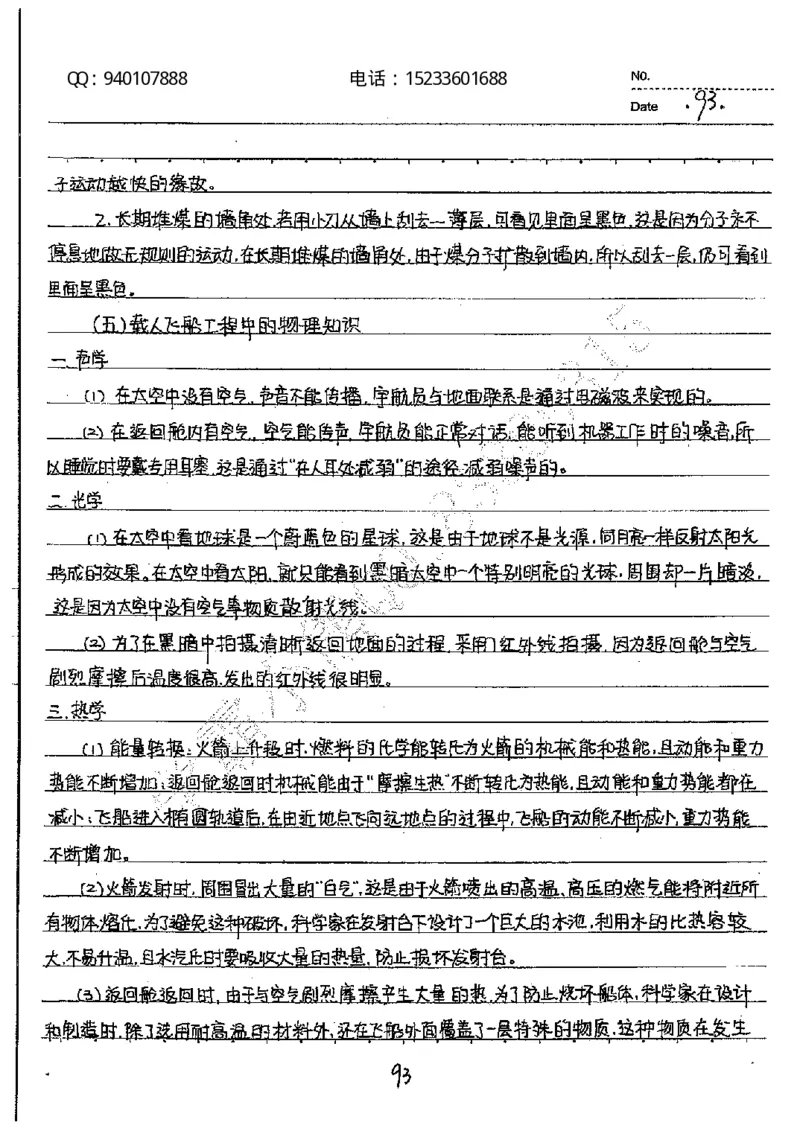 QQ：940107888 电话：15233601688 No.
Date .93.
子运动越快的缘故。
2.长期堆煤的墙角处,若用小刀从墙上刮去一薄层,可看见里面呈黑色,这是因为分子永不
停息地做无规则的运动,在长期堆煤的墙角处,由于煤分子扩散到墙内,所以刮去一层,仍可看到
里面呈黑色。
(五)载人飞船工程中的物理知识
一.声学
(1) 在太空中没有空气,声音不能传播,宇航员与地面联系是通过电磁波来实现的。
(2) 在返回舱内有空气,空气能传声,宇航员能正常对话,能听到机器工作时的噪音,所
以睡觉时要戴专用耳塞,这是通过“在人耳处减弱”的途径减弱噪声的。
二.光学
(1) 在太空中看地球是一个蔚蓝色的星球,这是由于地球不是光源,同月亮一样反射太阳光
形成的效果。在太空中看太阳,就只能看到黑暗太空中一个特别明亮的光球,周围却一片暗淡,
这是因为太空中没有空气等物质散射光线。
(2) 为了在黑暗中拍摄清晰返回地面的过程,采用了红外线拍摄,因为返回舱与空气
剧烈摩擦后温度很高,发出的红外线很明显。
三.热学
(1) 能量转换：火箭上升段时,燃料的化学能转化为火箭的机械能和热能,且动能和重力
势能不断增加；返回舱返回时机械能由于“摩擦生热”不断转化为热能,且动能和重力势能都在
减小；飞船进入椭圆轨道后,在由近地点飞向远地点的过程中,飞船的动能不断减小,重力势能
不断增加。
(2) 火箭发射时,周围冒出大量的“白气”,这是由于火箭喷出的高温、高压的燃气能将附近所
有物体熔化,为了避免这种破坏,科学家在发射台下设计了一个巨大的水池,利用水的比热容较
大,不易升温,且水汽化时要吸收大量的热量,防止损坏发射台。
(3) 返回舱返回时,由于与空气剧烈摩擦产生大量的热,为了防止烧坏船体,科学家在设计
和制造时,除了选用耐高温的材料外,还在飞船外面覆盖了一层特殊的物质,这种物质在发生
93